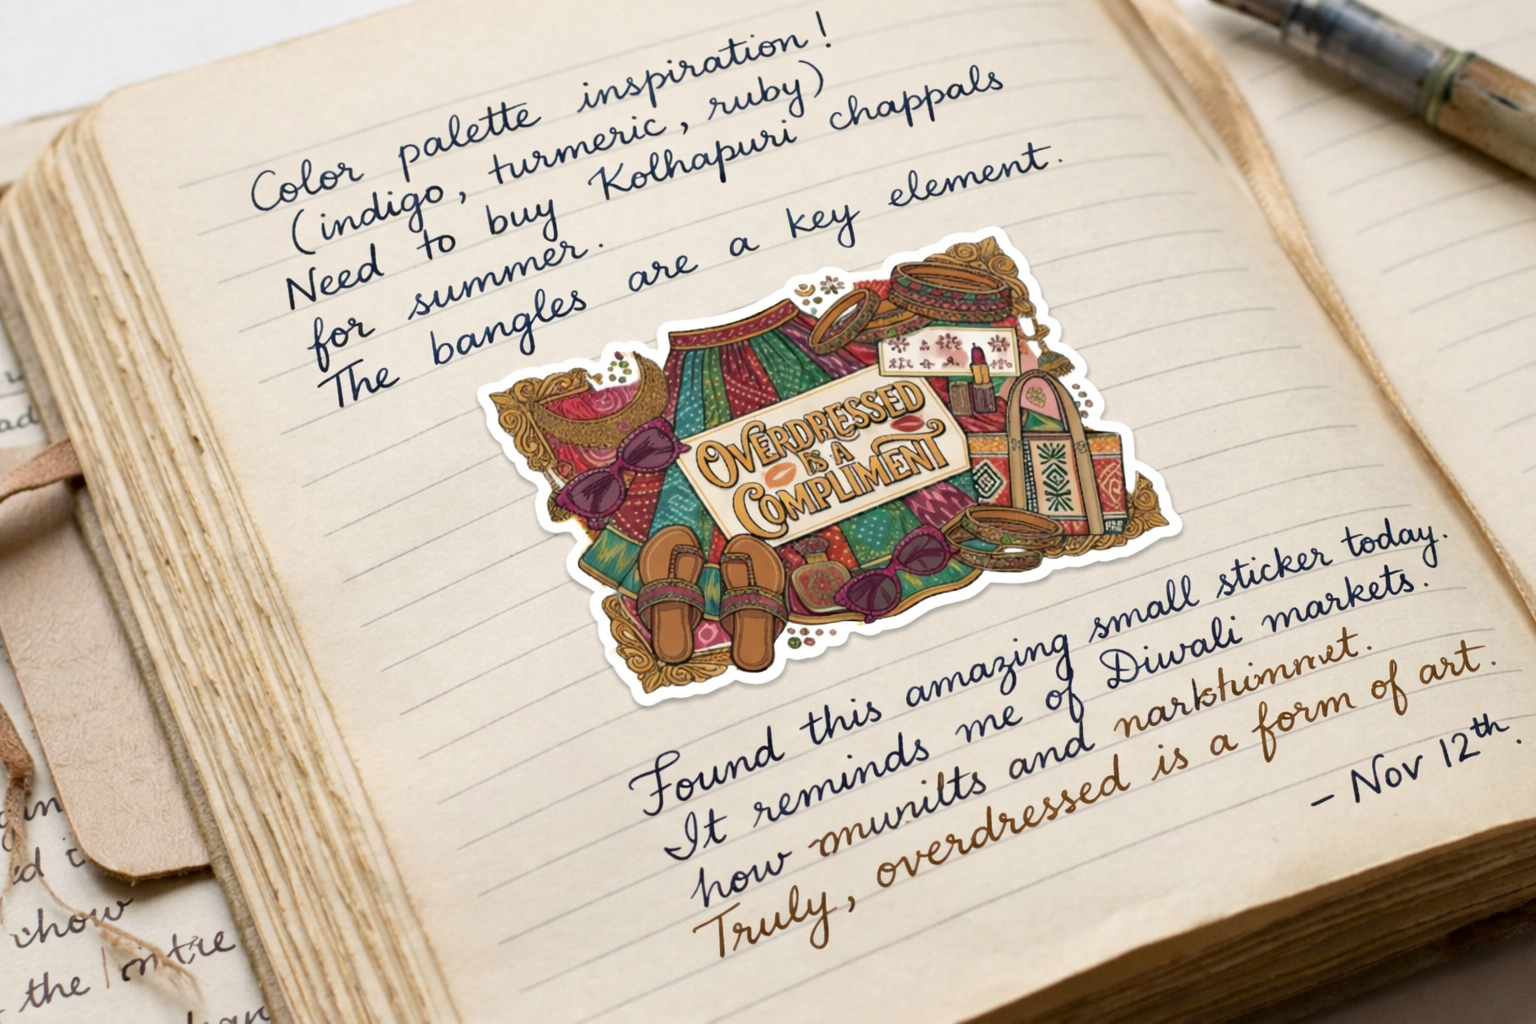 Color palette inspiration!
(indigo, turmeric, ruby)
Need to buy Kolhapuri chappals
for summer.
The bangles are a key element.
OVERDRESSED
IS A
COMPLIMENT
Found this amazing small sticker today.
It reminds me of Diwali markets.
how munilts and
Truly, overdressed is a form of art.
– Nov 12th.
show
the